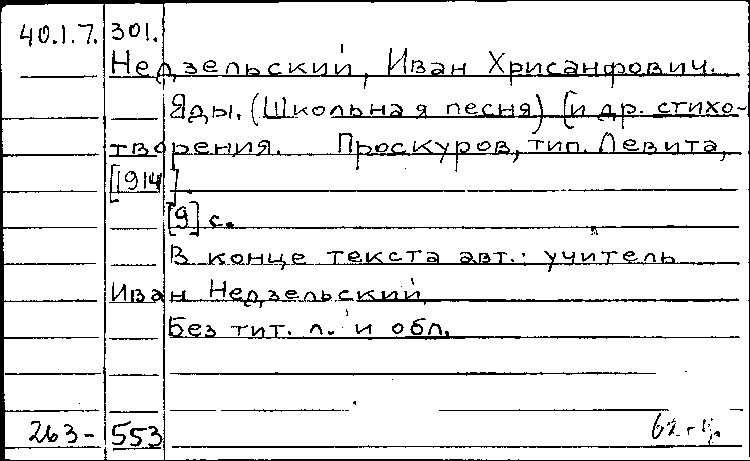 40.1.7.301.
Недзельский, Иван Хрисанфович.
Яды. (Школьная песня) [и др. стихо-
творения. Проскуров, тип. Левита,
[1914].
[9] с.
В конце текста авт.: учитель
Иван Недзельский
Без тит. л. и обл.
263-553